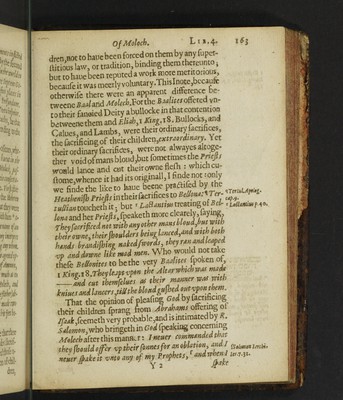 Of Moloch. LIB. 4. 163
dren, not to haue been forced on them by any super-
stitious law, or tradition, binding them thereunto;
but to haue been reputed a work more meritorious,
because it was meerly voluntary. This I note, because
otherwise there were an apparent difference be-
tweene Baal and Moloch. For the Baalites offered vn-
to their fancied Deity a bullocke in that contention
betweene them and Eliah, 1 King. 18. Bullocks, and
Calues, and Lambs, were their ordinary sacrifices,
the sacrificing of their children, extraordinary. Yet
their ordinary sacrifices, were not alwayes altoge-
ther void of mans bloud, but sometimes the Priests
would lance and cut their owne flesh: which cu-
stome, whence it had its originall, I finde not; only
we finde the like to haue beene practised by the
Heathenish Priests in their sacrifices to Bellona; Ter-
tullian toucheth it; but Lactantius treating of Bel-
lona and her Priests, speaketh more clearely, saying,
They sacrificed not with any other mans bloud, but with
their owne, their shoulders being lanced, and with both
hands brandishing naked swords, they ran and leaped
vp and downe like mad men. Who would not take
these Bellonites to be the very Baalites spoken of,
1 King. 18. They leapt vpon the Altar which was made
—— and cut themselues as their manner was with
kniues and lancers, till the bloud gushed out vpon them.
That the opinion of pleasing God by sacrificing
their children sprang from Abrahams offering of
Isaak, seemeth very probable, and is intimated by R.
Salomon, who bringeth in God speaking concerning
Moloch after this maner: I neuer commanded that
they should offer vp their sonnes for an oblation, and I
neuer spake it vnto any of my Prophets, and when I
Y 2 spake
Tertul. Apolog.
cap. 9.
Lactantius p. 40.
Salomon Iarchi.
Ier. 7. 31.